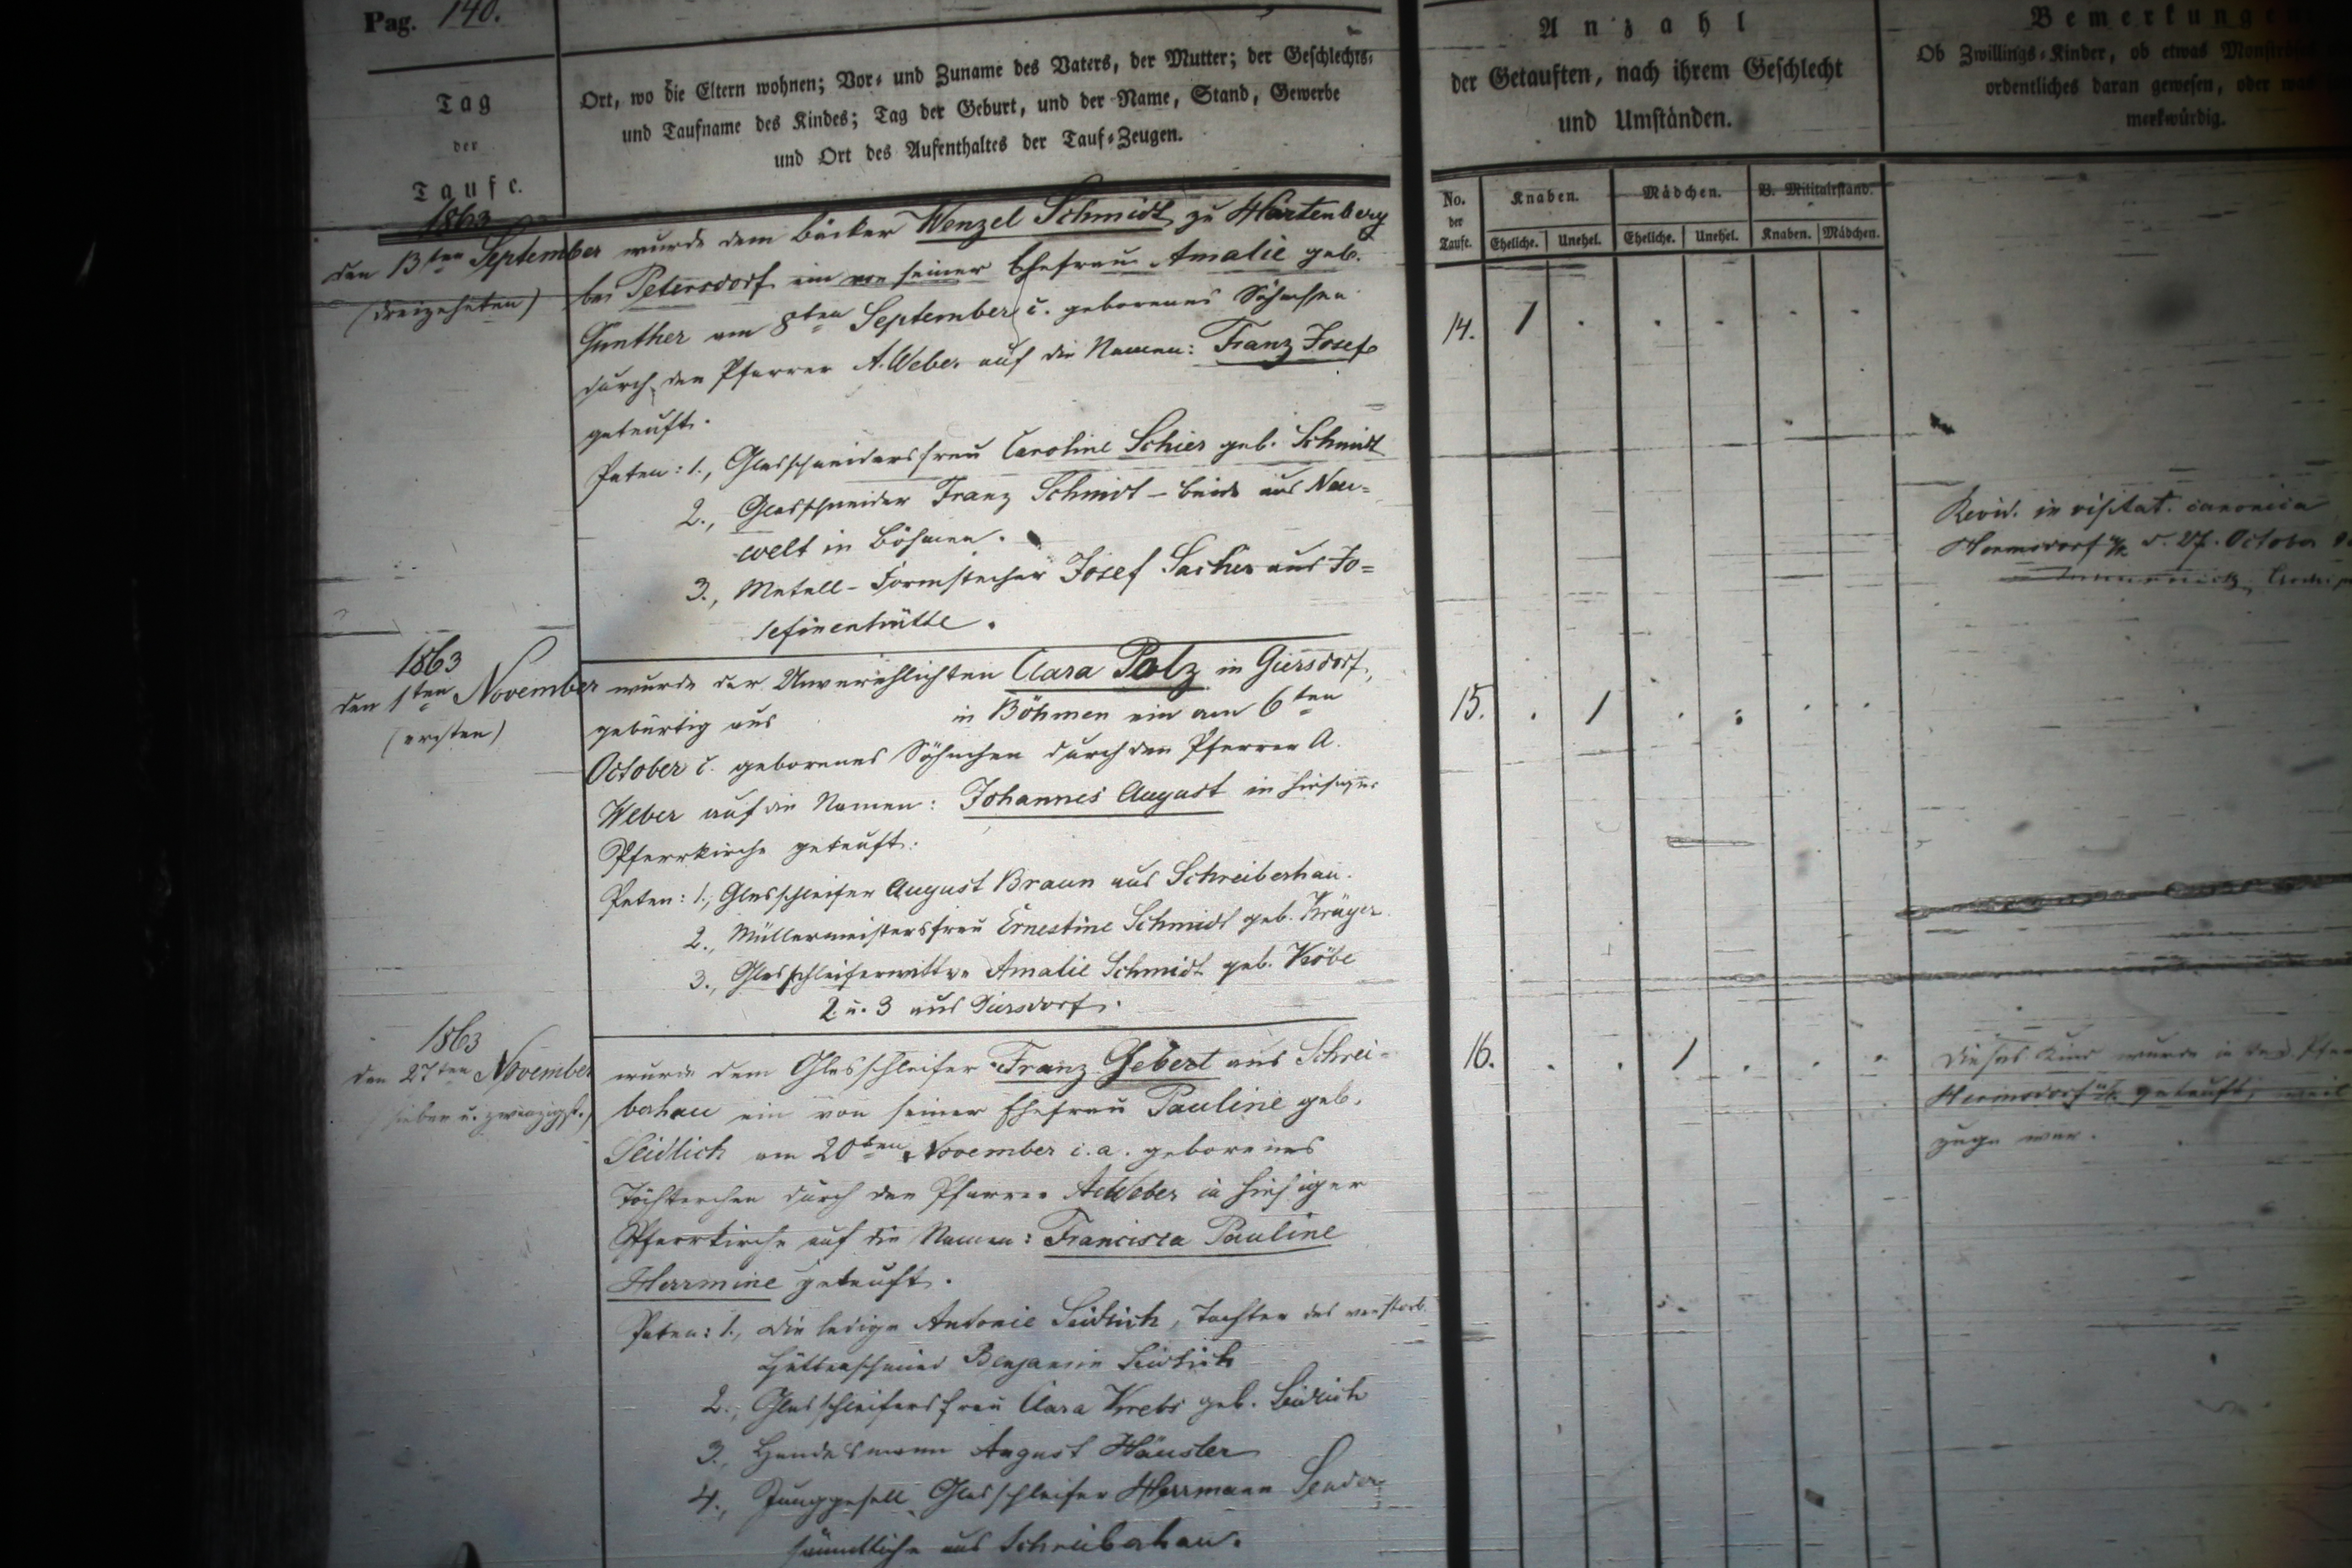 Pag. 140.
Tag
der
Taufe.
Ort, wo die Eltern wohnen; Vor- und Zuname des Vaters, der Mutter; der Geschlechts-
und Taufname des Kindes; Tag der Geburt, und der Name, Stand, Gewerbe
und Ort des Aufenthaltes der Tauf-Zeugen.
Anzahl
der Getauften, nach ihrem Geschlecht
und Umständen.
Bemerkungen
Ob Zwillings-Kinder, ob etwas
ordentliches daran gewesen, oder
merkwürdig.
No.
der
Taufe.
Knaben.
Mädchen.
B. Militairstand.
Eheliche. Unehel. Eheliche. Unehel. Knaben. Mädchen.
1863
den 13ten September
(dreizehnten)
wurde dem Bäcker Wenzel Schmidt zu Hartenberg
bei Petersdorf ein von seiner Ehefrau Amalie geb.
Gunther am 8ten September c. geborenes Söhnchen
durch den Pfarrer A. Weber auf die Namen: Franz Josef
getauft.
Paten: 1., Glasschneidersfrau Caroline Schier geb. Schmidt
2., Glasschneider Franz Schmidt - beide aus Neu=
welt in Böhmen.
3., Metall-Formstecher Josef Sacher aus Jo=
sefinenhütte.
14. 1 . . . . .
Revid. in visitat. canonica
Hermsdorf u/K d. 27. October
1863
den 1ten November
(ersten)
wurde der Unverehlichten Clara Polz in Giersdorf,
gebürtig aus in Böhmen ein am 6ten
October c. geborenes Söhnchen durch den Pfarrer A.
Weber auf die Namen: Johannes August in hiesiger
Pfarrkirche getauft.
Paten: 1., Glasschleifer August Braun aus Schreiberhau.
2., Müllermeistersfrau Ernestine Schmidt geb. Krüger.
3., Glasschleiferwittwe Amalie Schmidt geb.
2. u. 3 aus Giersdorf.
15. . 1 . . . .
1863
den 27ten November
(sieben u. zwanzigst.)
wurde dem Glasschleifer Franz Gebert aus Schrei=
berhau ein von seiner Ehefrau Pauline geb.
Seidlich am 20ten November c. a. geborenes
Töchterchen durch den Pfarrer A. Weber in hiesiger
Pfarrkirche auf die Namen: Francisca Pauline
Herrmine getauft.
Paten: 1., die ledige Antonie Seidlich, Tochter des verstorb.
Hüttenschmied Benjamin Seidlich
2., Glasschleifersfrau Clara Krebs geb. Seidlich
3., Handelsmann August Häusler
4., Junggesell Glasschleifer Herrmann Sender
sämmtliche aus Schreiberhau.
16. . . 1 . . .
Dieses Kind wurde in der
Hermsdorf u/K. getauft, weil
zuge war.